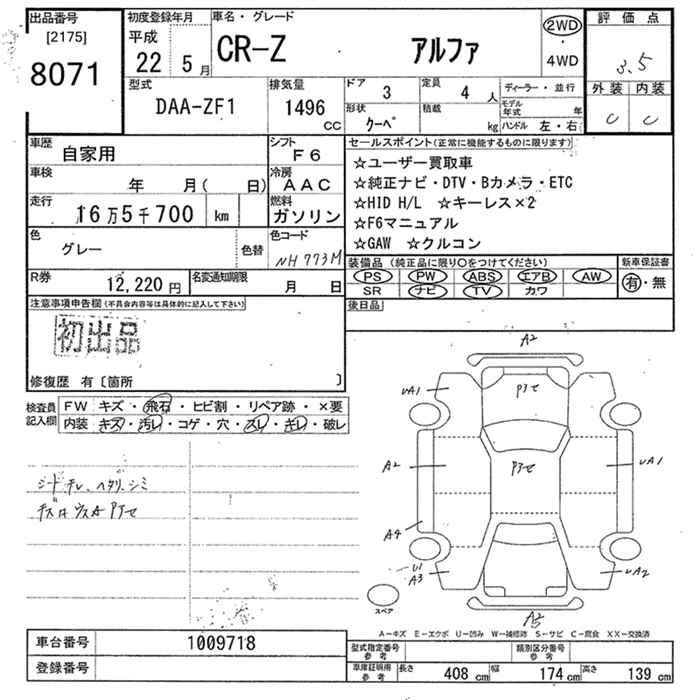 出品番号 初度登録年月 車名・グレード 評価点
[2175] 平成 22 5月 CR-Z アルファ 2WD ・ 4WD 3.5
8071
型式 排気量 ドア 3 定員 4 人 ディーラー・並行 外装 内装
DAA-ZF1 1496 CC 形状 クーペ 積載 kg モデル年式 年 C C
ハンドル 左・右
車歴 自家用 シフト F6 セールスポイント(正常に機能するものに限ります)
車検 年 月( 日) 冷房 AAC ☆ユーザー買取車
☆純正ナビ・DTV・Bカメラ・ETC
走行 16万5千700 km 燃料 ガソリン ☆HID H/L ☆キーレス×2
☆F6マニュアル
色 グレー 色替 色コード NH773M ☆GAW ☆クルコン
装備品 (純正品に限り○をつけてください) 新車保証書
R券 12,220円 名変通知期限 月 日 PS PW ABS エアB AW 有・無
SR ナビ TV カワ
注意事項申告欄(不具合内容等は具体的に記入して下さい) 後日品
初出品
修復歴 有〔箇所 〕
検査員記入欄 FW キズ・飛石・ヒビ割・リペア跡・×要
内装 キズ・汚レ・コゲ・穴・スレ・キレ・破レ
シートキレ、ヘタリ、シミ
A2
UA1 Pアセ UA1
A2 Pアセ UA1
A4
U1
A3 UA2
スペア A2
A-キズ E-エクボ U-凹み W-補修跡 S-サビ C-腐食 XX-交換済
車台番号 1009718 型式指定番号 参考 類別区分番号 参考
登録番号 車庫証明用 参考 長さ 408 cm 幅 174 cm 高さ 139 cm